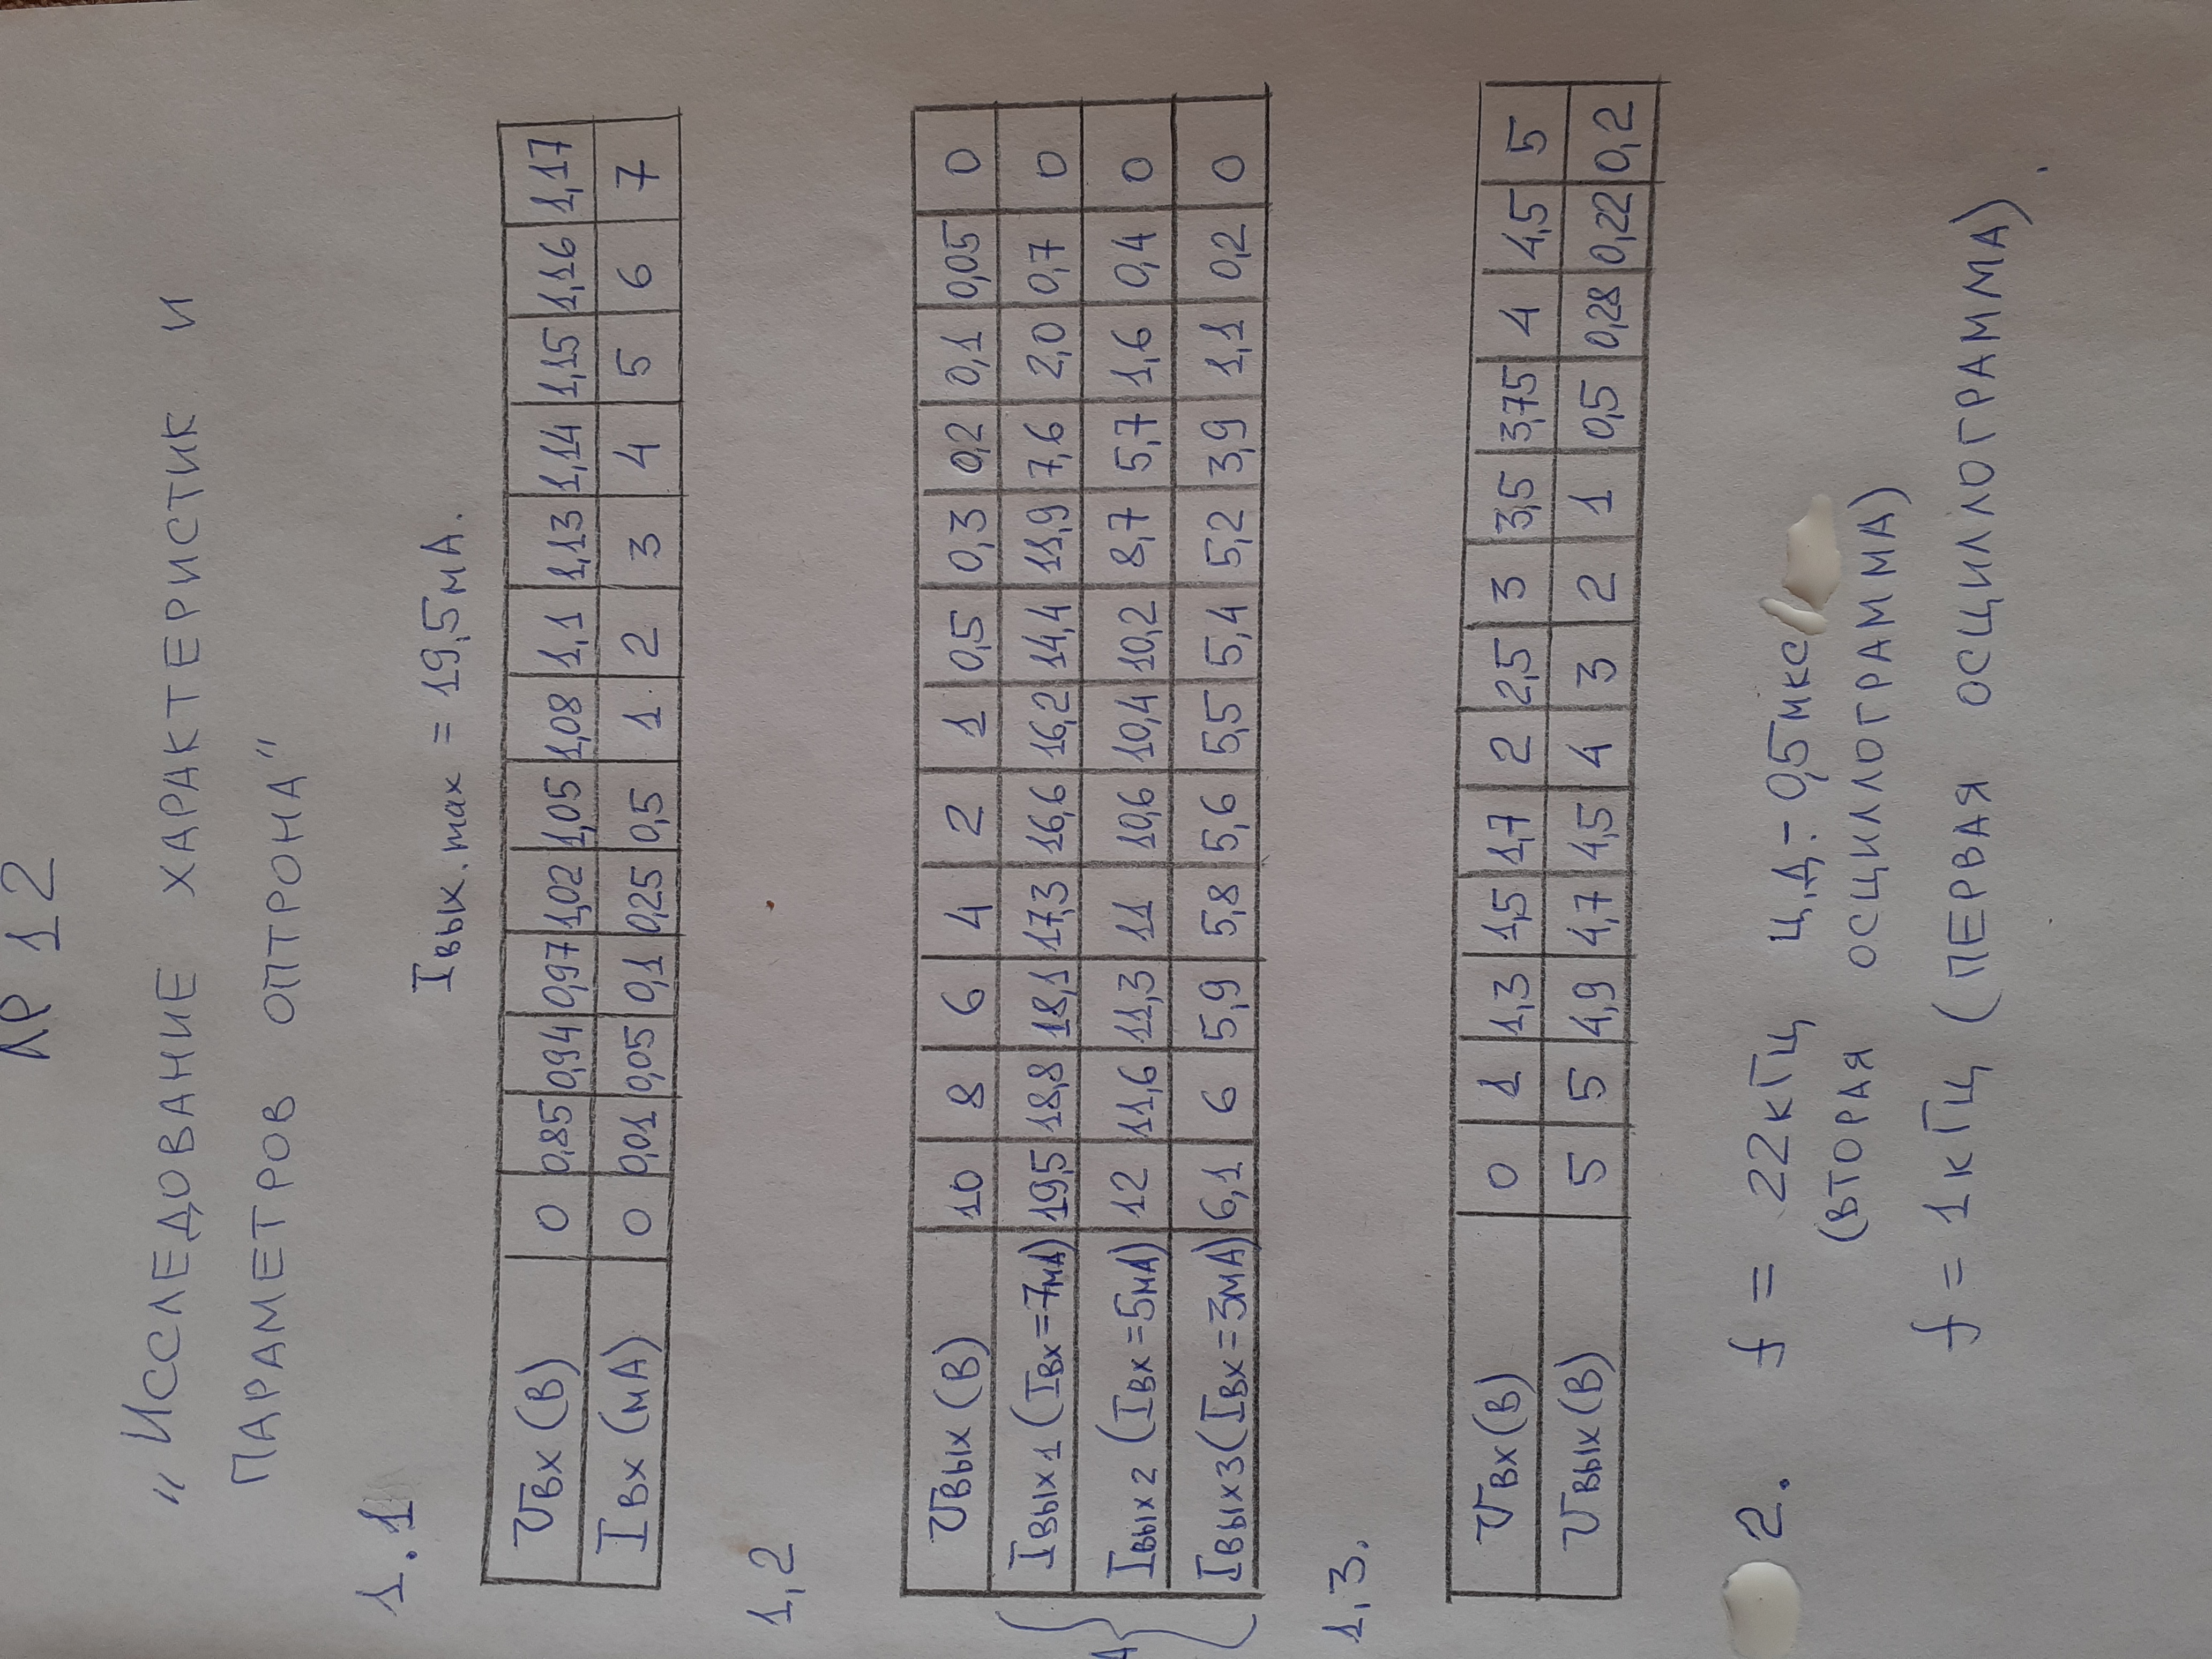 ЛР 12
„Исследование характеристик и
параметров оптрона"
1.1
Iвых.max = 19,5мА.
Uвх (В) 0 0,85 0,94 0,97 1,02 1,05 1,08 1,1 1,13 1,14 1,15 1,16 1,17
Iвх (мА) 0 0,01 0,05 0,1 0,25 0,5 1 2 3 4 5 6 7
1,2
Uвых (В) 10 8 6 4 2 1 0,5 0,3 0,2 0,1 0,05 0
Iвых1 (Iвх=7мА) 19,5 18,8 18,1 17,3 16,6 16,2 14,4 11,9 7,6 2,0 0,7 0
Iвых2 (Iвх=5мА) 12 11,6 11,3 11 10,6 10,4 10,2 8,7 5,7 1,6 0,4 0
Iвых3 (Iвх=3мА) 6,1 6 5,9 5,8 5,6 5,5 5,4 5,2 3,9 1,1 0,2 0
1,3.
Uвх (В) 0 1 1,3 1,5 1,7 2 2,5 3 3,5 3,75 4 4,5 5
Uвых (В) 5 5 4,9 4,7 4,5 4 3 2 1 0,5 0,28 0,22 0,2
2. f = 22кГц ц.д.- 0,5мкс
(вторая осциллограмма)
f = 1кГц (первая осциллограмма).